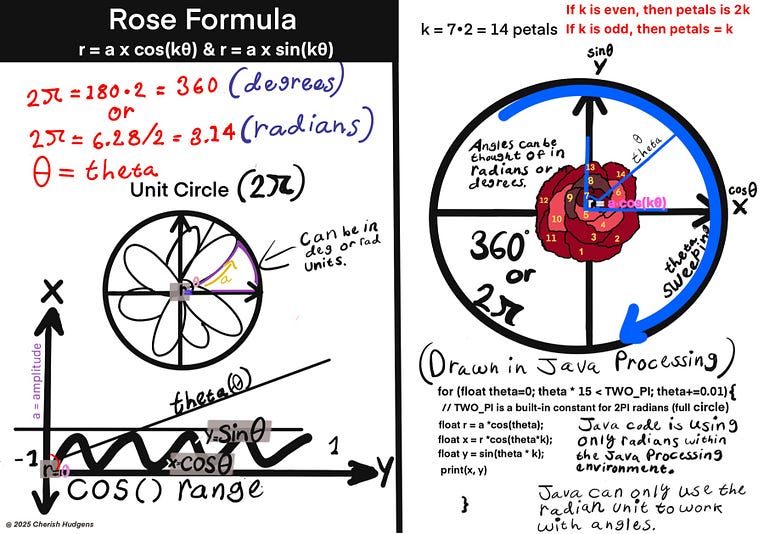 Rose Formula
r = a x cos(kθ) & r = a x sin(kθ)
2π = 180•2 = 360 (degrees)
or
2π = 6.28/2 = 3.14 (radians)
θ = theta
Unit Circle (2π)
Can be in
deg or rad
units.
r
θ
a
X
a = amplitude
theta(θ)
y=sinθ
x=cosθ
-1
1
r=θ
Y
COS() range
@ 2025 Cherish Hudgens
If k is even, then petals is 2k
k = 7•2 = 14 petals
If k is odd, then petals = k
sinθ
Y
Angles can be
thought of in
radians or
degrees.
θ
theta
cosθ
X
13
14
8
6
7
9
12
r = a•cos(kθ)
10
5
4
11
3
2
1
360°
or
2π
theta
sweeping
(Drawn in Java Processing)
for (float theta=0; theta * 15 < TWO_PI; theta+=0.01){
// TWO_PI is a built-in constant for 2PI radians (full circle)
float r = a *cos(theta);
float x = r *cos(theta*k);
float y = sin(theta * k);
print(x, y)
}
Java code is using
only radians within
the Java Processing
environment.
Java can only use the
radian unit to work
with angles.